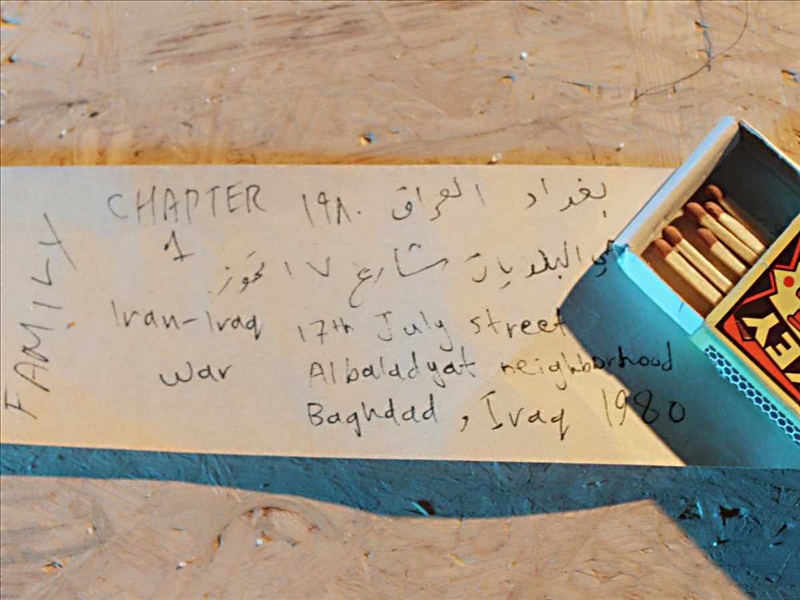 FAMILY
CHAPTER
1
Iran-Iraq
war
بغداد العراق ١٩٨٠
حي البلديات شارع ١٧ تموز
17th July street
Albaladyat neighborhood
Baghdad, Iraq 1980